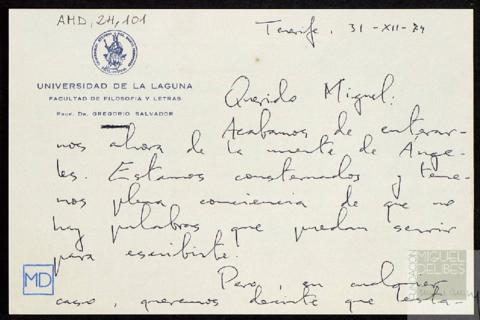 AMD, 24, 101
Tenerife, 31-XII-74
UNIVERSIDAD DE LA LAGUNA
FACULTAD DE FILOSOFIA Y LETRAS
PROF. DR. GREGORIO SALVADOR
Querido Miguel:
Acabamos de enterar-
nos ahora de la muerte de Ánge-
les. Estamos consternados y tene-
mos plena conciencia de que no
hay palabras que puedan servir
para escribirte.
Pero, en cualquier
caso, queremos decirte que
MD
FUNDACIÓN
MIGUEL
DELIBES